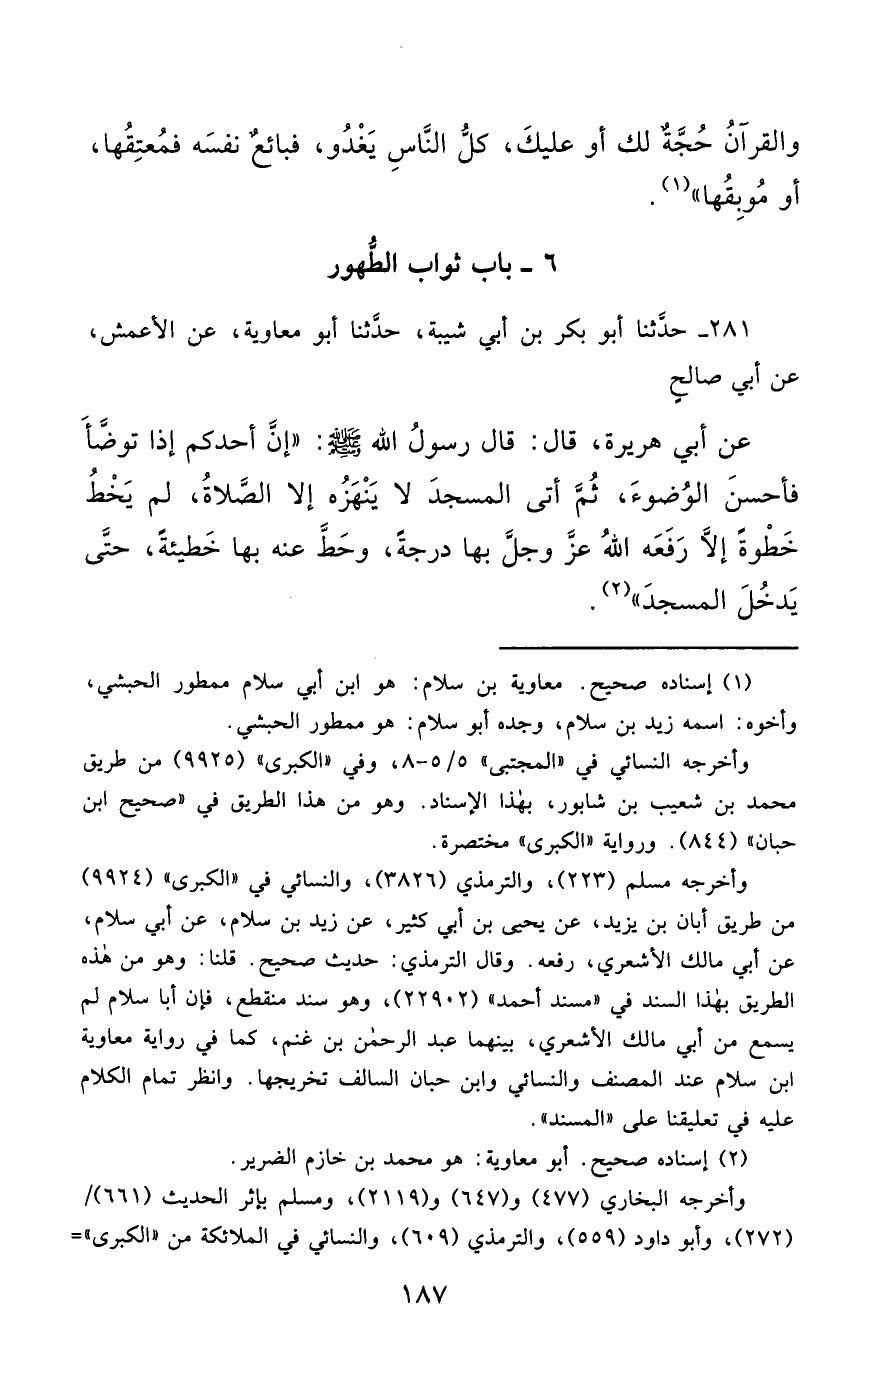 والقرآنُ حُجَّةٌ لك أو عليكَ، كلُّ النَّاسِ يَغْدُو، فبائعٌ نفسَه فمُعتِقُها،
أو مُوبِقُها»(١).
٦ ـ باب ثواب الطُّهور
٢٨١ـ حدَّثنا أبو بكر بن أبي شيبة، حدَّثنا أبو معاوية، عن الأعمش،
عن أبي صالحٍ
عن أبي هريرة، قال: قال رسولُ الله ﷺ: «إنَّ أحدكم إذا توضَّأَ
فأحسنَ الوُضوءَ، ثُمَّ أتى المسجدَ لا يَنْهَزُه إلا الصَّلاةُ، لم يَخْطُ
خَطْوةً إلاَّ رَفَعَه اللهُ عزَّ وجلَّ بها درجةً، وحَطَّ عنه بها خَطيئةً، حتَّى
يَدخُلَ المسجدَ»(٢).
(١) إسناده صحيح. معاوية بن سلام: هو ابن أبي سلام ممطور الحبشي،
وأخوه: اسمه زيد بن سلام، وجده أبو سلام: هو ممطور الحبشي.
وأخرجه النسائي في «المجتبى» ٥/٥-٨، وفي «الكبرى» (٩٩٢٥) من طريق
محمد بن شعيب بن شابور، بهٰذا الإسناد. وهو من هذا الطريق في «صحيح ابن
حبان» (٨٤٤). ورواية «الكبرى» مختصرة.
وأخرجه مسلم (٢٢٣)، والترمذي (٣٨٢٦)، والنسائي في «الكبرى» (٩٩٢٤)
من طريق أبان بن يزيد، عن يحيى بن أبي كثير، عن زيد بن سلام، عن أبي سلام،
عن أبي مالك الأشعري، رفعه. وقال الترمذي: حديث صحيح. قلنا: وهو من هٰذه
الطريق بهٰذا السند في «مسند أحمد» (٢٢٩٠٢)، وهو سند منقطع، فإن أبا سلام لم
يسمع من أبي مالك الأشعري، بينهما عبد الرحمٰن بن غنم، كما في رواية معاوية
ابن سلام عند المصنف والنسائي وابن حبان السالف تخريجها. وانظر تمام الكلام
عليه في تعليقنا على «المسند».
(٢) إسناده صحيح. أبو معاوية: هو محمد بن خازم الضرير.
وأخرجه البخاري (٤٧٧) و(٦٤٧) و(٢١١٩)، ومسلم بإثر الحديث (٦٦١)/
(٢٧٢)، وأبو داود (٥٥٩)، والترمذي (٦٠٩)، والنسائي في الملائكة من «الكبرى»=
١٨٧